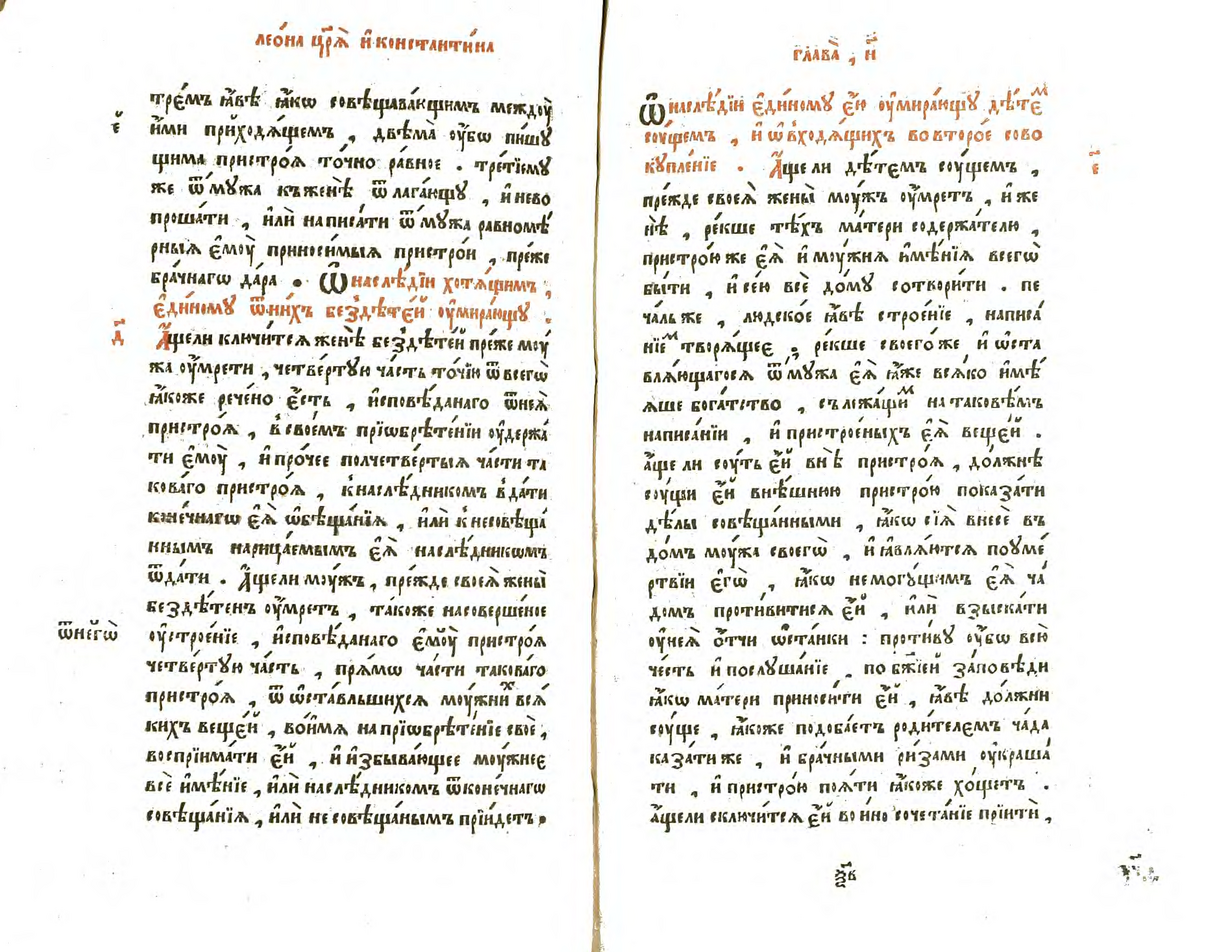 леѻ́на цр҃ѧ̀ и҆ константи́на
тре́мъ ꙗ҆́вѣ ꙗ҆́кѡ совѣщава́ющимъ междоу̀
є҃
и҆́ми прихо́дѧщемъ , двѣ́ма оу҆́бѡ пи́шꙋ
щима пристро́ѧ то́чно ра́вное . тре́тїемꙋ
же ѿ мꙋ́жа къ женѣ̀ ѿлага́ющꙋ , и҆ не во
проша́ти , и҆лѝ написа́ти ѿ мꙋ́жа равномѣ́
рныѧ є҆моу̀ приноси́мыѧ пристро́и , пре́же
бра́чнагѡ да́ра . Ѡ҆ наслѣ́дїи хотѧ́щимъ ,
є҆ди́номꙋ ѿ ни́хъ без̾ дѣте́й оу҆мира́ющꙋ .
д҃
А҆́ще ли ключи́тсѧ женѣ̀ без̾ дѣте́й пре́же моу́
жа оу҆мре́ти , четве́ртꙋю ча́сть то́чїю ѿ всегѡ̀
ꙗ҆́коже рече́но є҆́сть , и҆сповѣ́данаго ѿ неѧ̀
пристро́ѧ , в̾ свое́мъ прїѡбрѣ́тенїи оу҆держа́
ти є҆моу̀ , и҆ про́чее полчетве́ртыѧ ча́сти та
кова́го пристро́ѧ , к̾ наслѣ́дникомъ в̾да́ти
коне́чнагѡ є҆ѧ̀ ѡ҆бѣща́нїѧ , и҆лѝ к̾ несовѣща́
ннымъ нарица́емымъ є҆ѧ̀ наслѣ́дникѡмъ
ѿда́ти . А҆́ще ли моу́жъ , пре́жде своеѧ̀ жены̀
без̾дѣ́тенъ оу҆́мретъ , та́коже на соверше́ное
ѿ негѡ̀
оу҆строе́нїе , и҆сповѣ́данаго є҆моу̀ пристро́ѧ
четве́ртꙋю ча́сть , прѧ́мѡ ча́сти такова́го
пристро́ѧ , ѿ ѡ҆ста́вльшихсѧ моу́жнихъ всѧ́
кихъ веще́й , во и҆́мѧ на прїѡбрѣ́тенїе своѐ ,
воспрїима́ти є҆́й , и҆ и҆збыва́ющее моу́жнее
всѐ и҆мѣ́нїе , и҆лѝ наслѣ́дникомъ ѿ коне́чнагѡ
совѣща́нїѧ , и҆лѝ не совѣща́нымъ прїи́детъ .
глава̀ , и҃
Ѡ҆ наслѣ́дїи є҆ди́номꙋ є҆ю̀ оу҆мира́ющꙋ дѣ́темъ
соу́щемъ , и҆ ѡ҆ входѧ́щихъ во второ́е сово
є҃
кꙋпле́нїе . А҆́ще ли дѣ́темъ соу́щемъ ,
пре́жде своеѧ̀ жены̀ моу́жъ оу҆́мретъ , и҆ же
нѣ̀ , ре́кше тѣ́хъ ма́тери содержа́телю ,
пристро́ю же є҆ѧ̀ и҆ моу́жнѧ и҆мѣ́нїѧ всегѡ̀
бы́ти , и҆ се́ю всѐ до́мꙋ сотвори́ти . пе
ча́ль же , людско́е ꙗ҆́вѣ строе́нїе , написа́
нїемъ творѧ́щее , ре́кше своего́ же и҆ ѡ҆ста
влѧ́ющагосѧ ѿ мꙋ́жа є҆ѧ̀ ꙗ҆́же всѧ́ко и҆мѣ́
ѧше бога́тство , съ лежа́щимъ на таковѣ́мъ
написа́нїи , и҆ пристро́еныхъ є҆ѧ̀ веще́й .
а҆́ще ли соу́ть є҆́й внѣ̀ пристро́ѧ , до́лжнѣ
соу́щи є҆́й внѣ́шнюю пристро́ю показа́ти
дѣ́лы совѣща́нными , ꙗ҆́кѡ сїѧ̀ внесѐ въ
до́мъ моу́жа своегѡ̀ , и҆ ꙗ҆влѧ́ютсѧ по оу҆ме́
ртвїи є҆гѡ̀ , ꙗ҆́кѡ немогꙋ́щимъ є҆ѧ̀ ча́
домъ проти́витисѧ є҆́й , и҆лѝ взыска́ти
оу҆ неѧ̀ ѻ҆́тчи ѡ҆ста́нки : проти́вꙋ оу҆́бѡ всю̀
че́сть и҆ послꙋша́нїе , по бж҃їей за́повѣди
ꙗ҆́кѡ ма́тери приноси́ти є҆́й , ꙗ҆́вѣ до́лжни
соу́ще , ꙗ҆́коже подоба́етъ роди́телемъ ча́да
каза́ти же , и҆ бра́чными ри́зами оу҆краша́
ти , и҆ пристро́ю поѧ́ти ꙗ҆́коже хо́щетъ .
а҆́ще ли сключи́тсѧ є҆́й во и҆́но сочета́нїе прїити́ ,
ѯ҃в